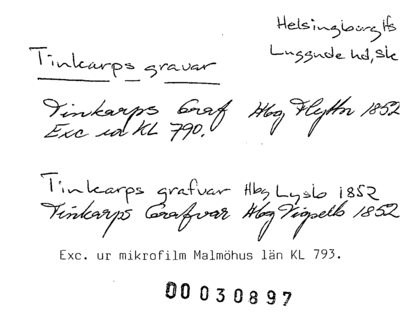 Helsingborg Hs
Luggude hd, Sk
Tinkarps gravar
Tinkarps Graf Hbg Flyttn 1852
Exc ur KL 790.
Tinkarps grafvar Hbg 1852
Tinkarps Grafvar Hbg 1852
Exc. ur mikrofilm Malmöhus län KL 793.
00030897